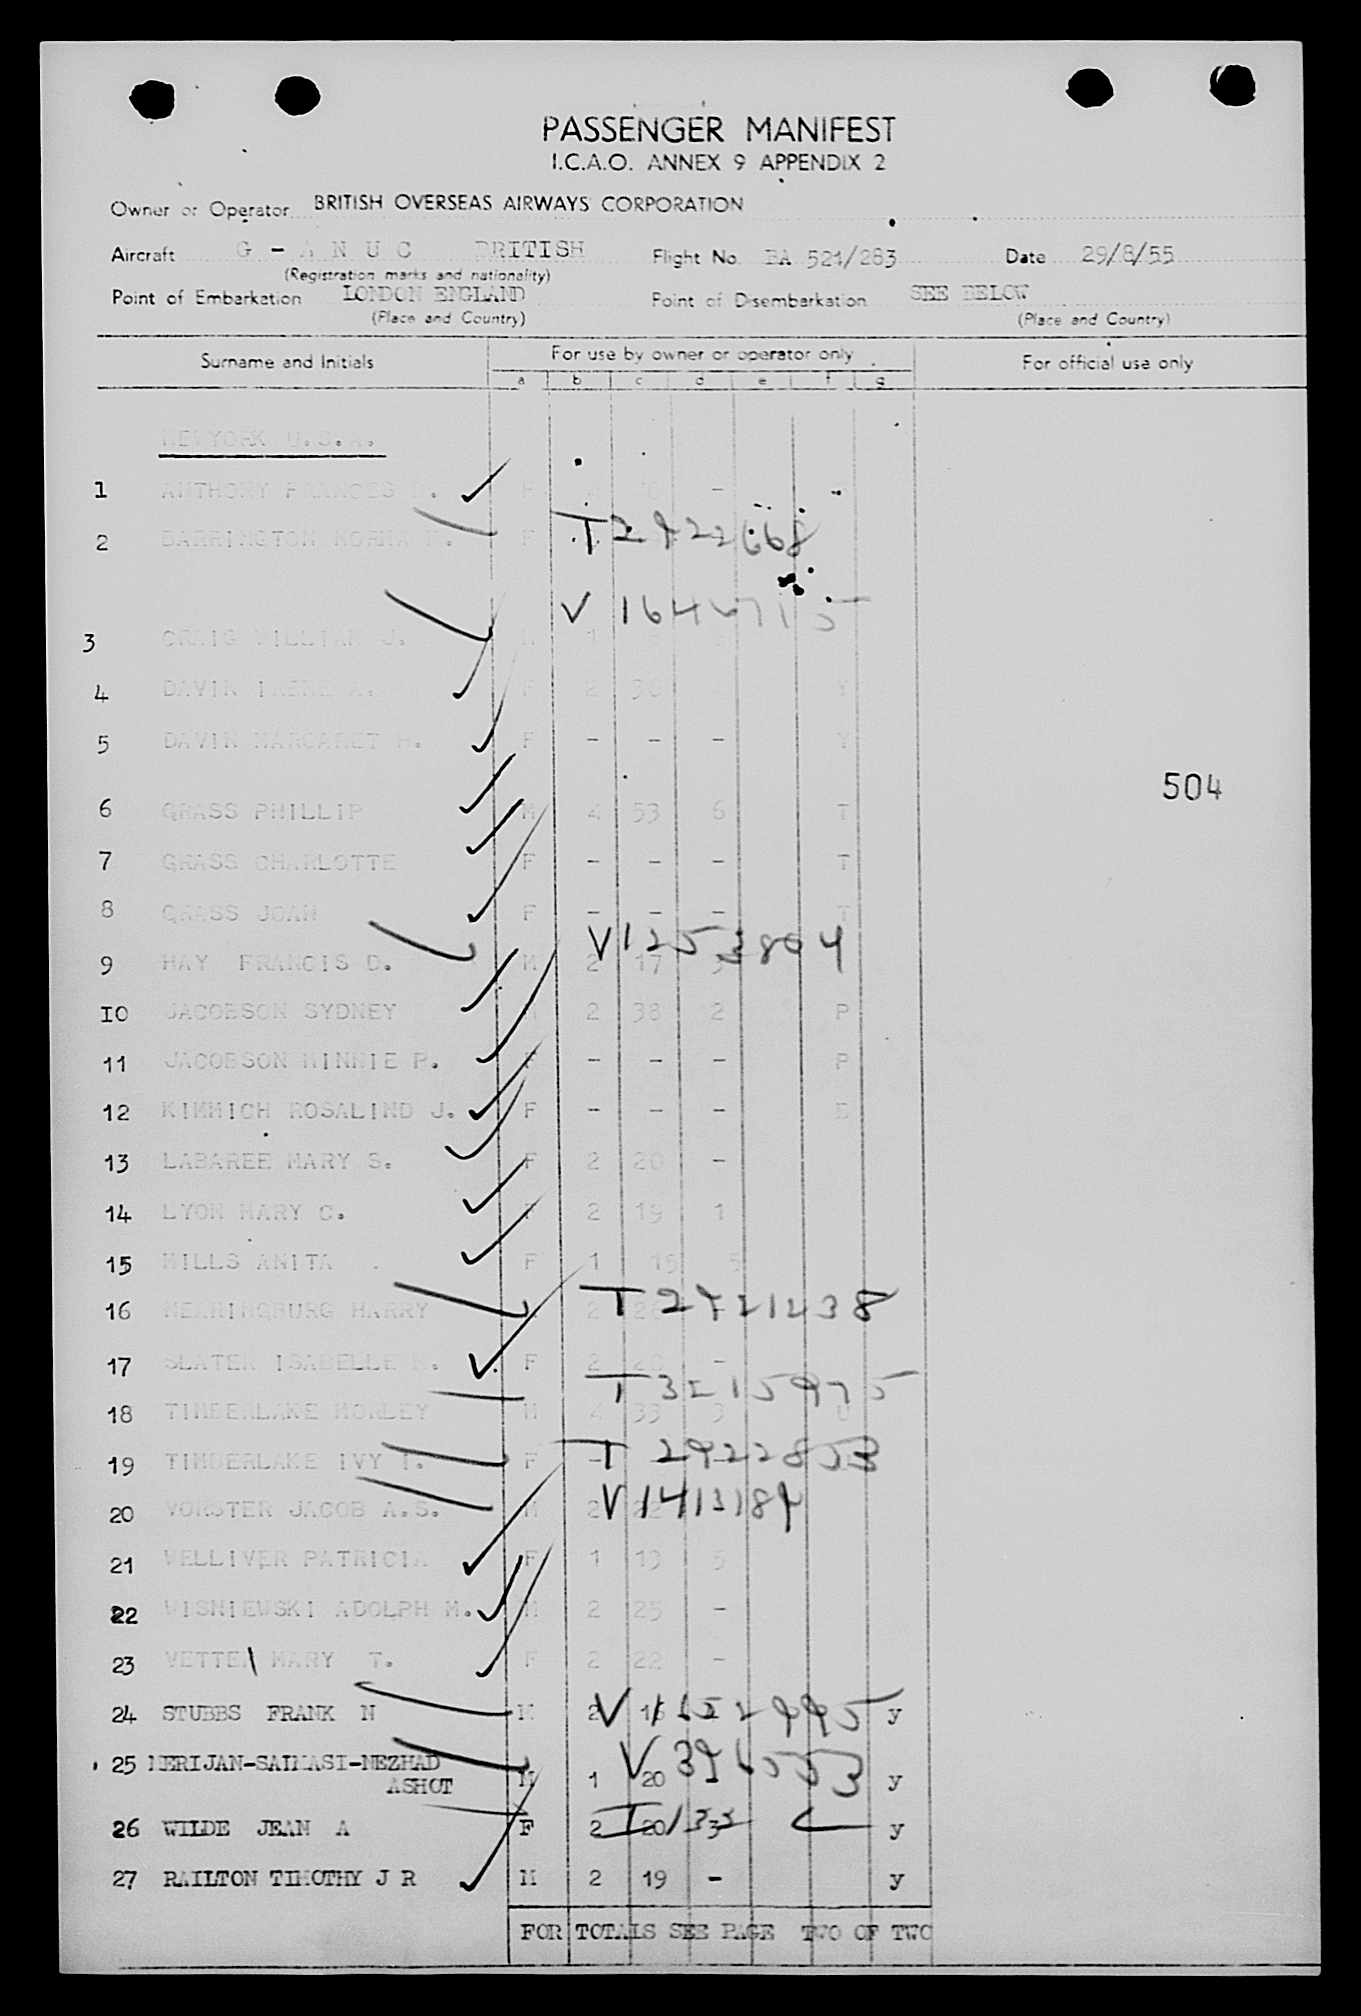 PASSENGER MANIFEST
I.C.A.O. ANNEX 9 APPENDIX 2
Owner or Operator BRITISH OVERSEAS AIRWAYS CORPORATION
Aircraft G - A N U C BRITISH Flight No. BA 521/283 Date 29/8/55
(Registration marks and nationality)
Point of Embarkation LONDON ENGLAND Point of Disembarkation SEE BELOW
(Place and Country) (Place and Country)
Surname and Initials For use by owner or operator only For official use only
a b c d e f g
NEWYORK U.S.A.
1 ANTHONY FRANCES F -
2 BARRINGTON NORMA F T2922668
V 1646715
3 CRAIG WILLIAM J. M 1
4 DAVIN IRENE A. F 2 30 Y
5 DAVIN MARGARET H. F - - - Y
504
6 GRASS PHILLIP M 4 53 6 T
7 GRASS CHARLOTTE F - - - T
8 GRASS JOAN F - - - T
V1253804
9 HAY FRANCIS D. M 2 17
10 JACOBSON SYDNEY M 2 38 2 P
11 JACOBSON MINNIE P. F - - - P
12 KIMMICH ROSALIND J. F - - - E
13 LABAREE MARY S. F 2 20 -
14 LYON MARY C. F 2 19 1
15 MILLS ANITA . F 1 15 5
16 HARRY 2 T2921238
17 SLATER ISABELLE F 2 20 -
T 3215975
18 TIMBERLAKE MORLEY M 4 33 3 U
19 TIMBERLAKE IVY F - T 2922853
20 VORSTER JACOB A.S. M 2 22 V1413189
21 WELLIVER PATRICIA F 1 19 5
22 WISNIEWSKI ADOLPH M. M 2 25 -
23 VETTER MARY T. F 2 22 -
24 STUBBS FRANK N M 2 y
25 NERIJAN-SAIMASI-NEZHAD
ASHOT M 1 20 y
26 WILDE JEAN A F 2 20 3 y
27 RAILTON TIMOTHY J R M 2 19 - y
FOR TOTALS SEE PAGE TWO OF TWO